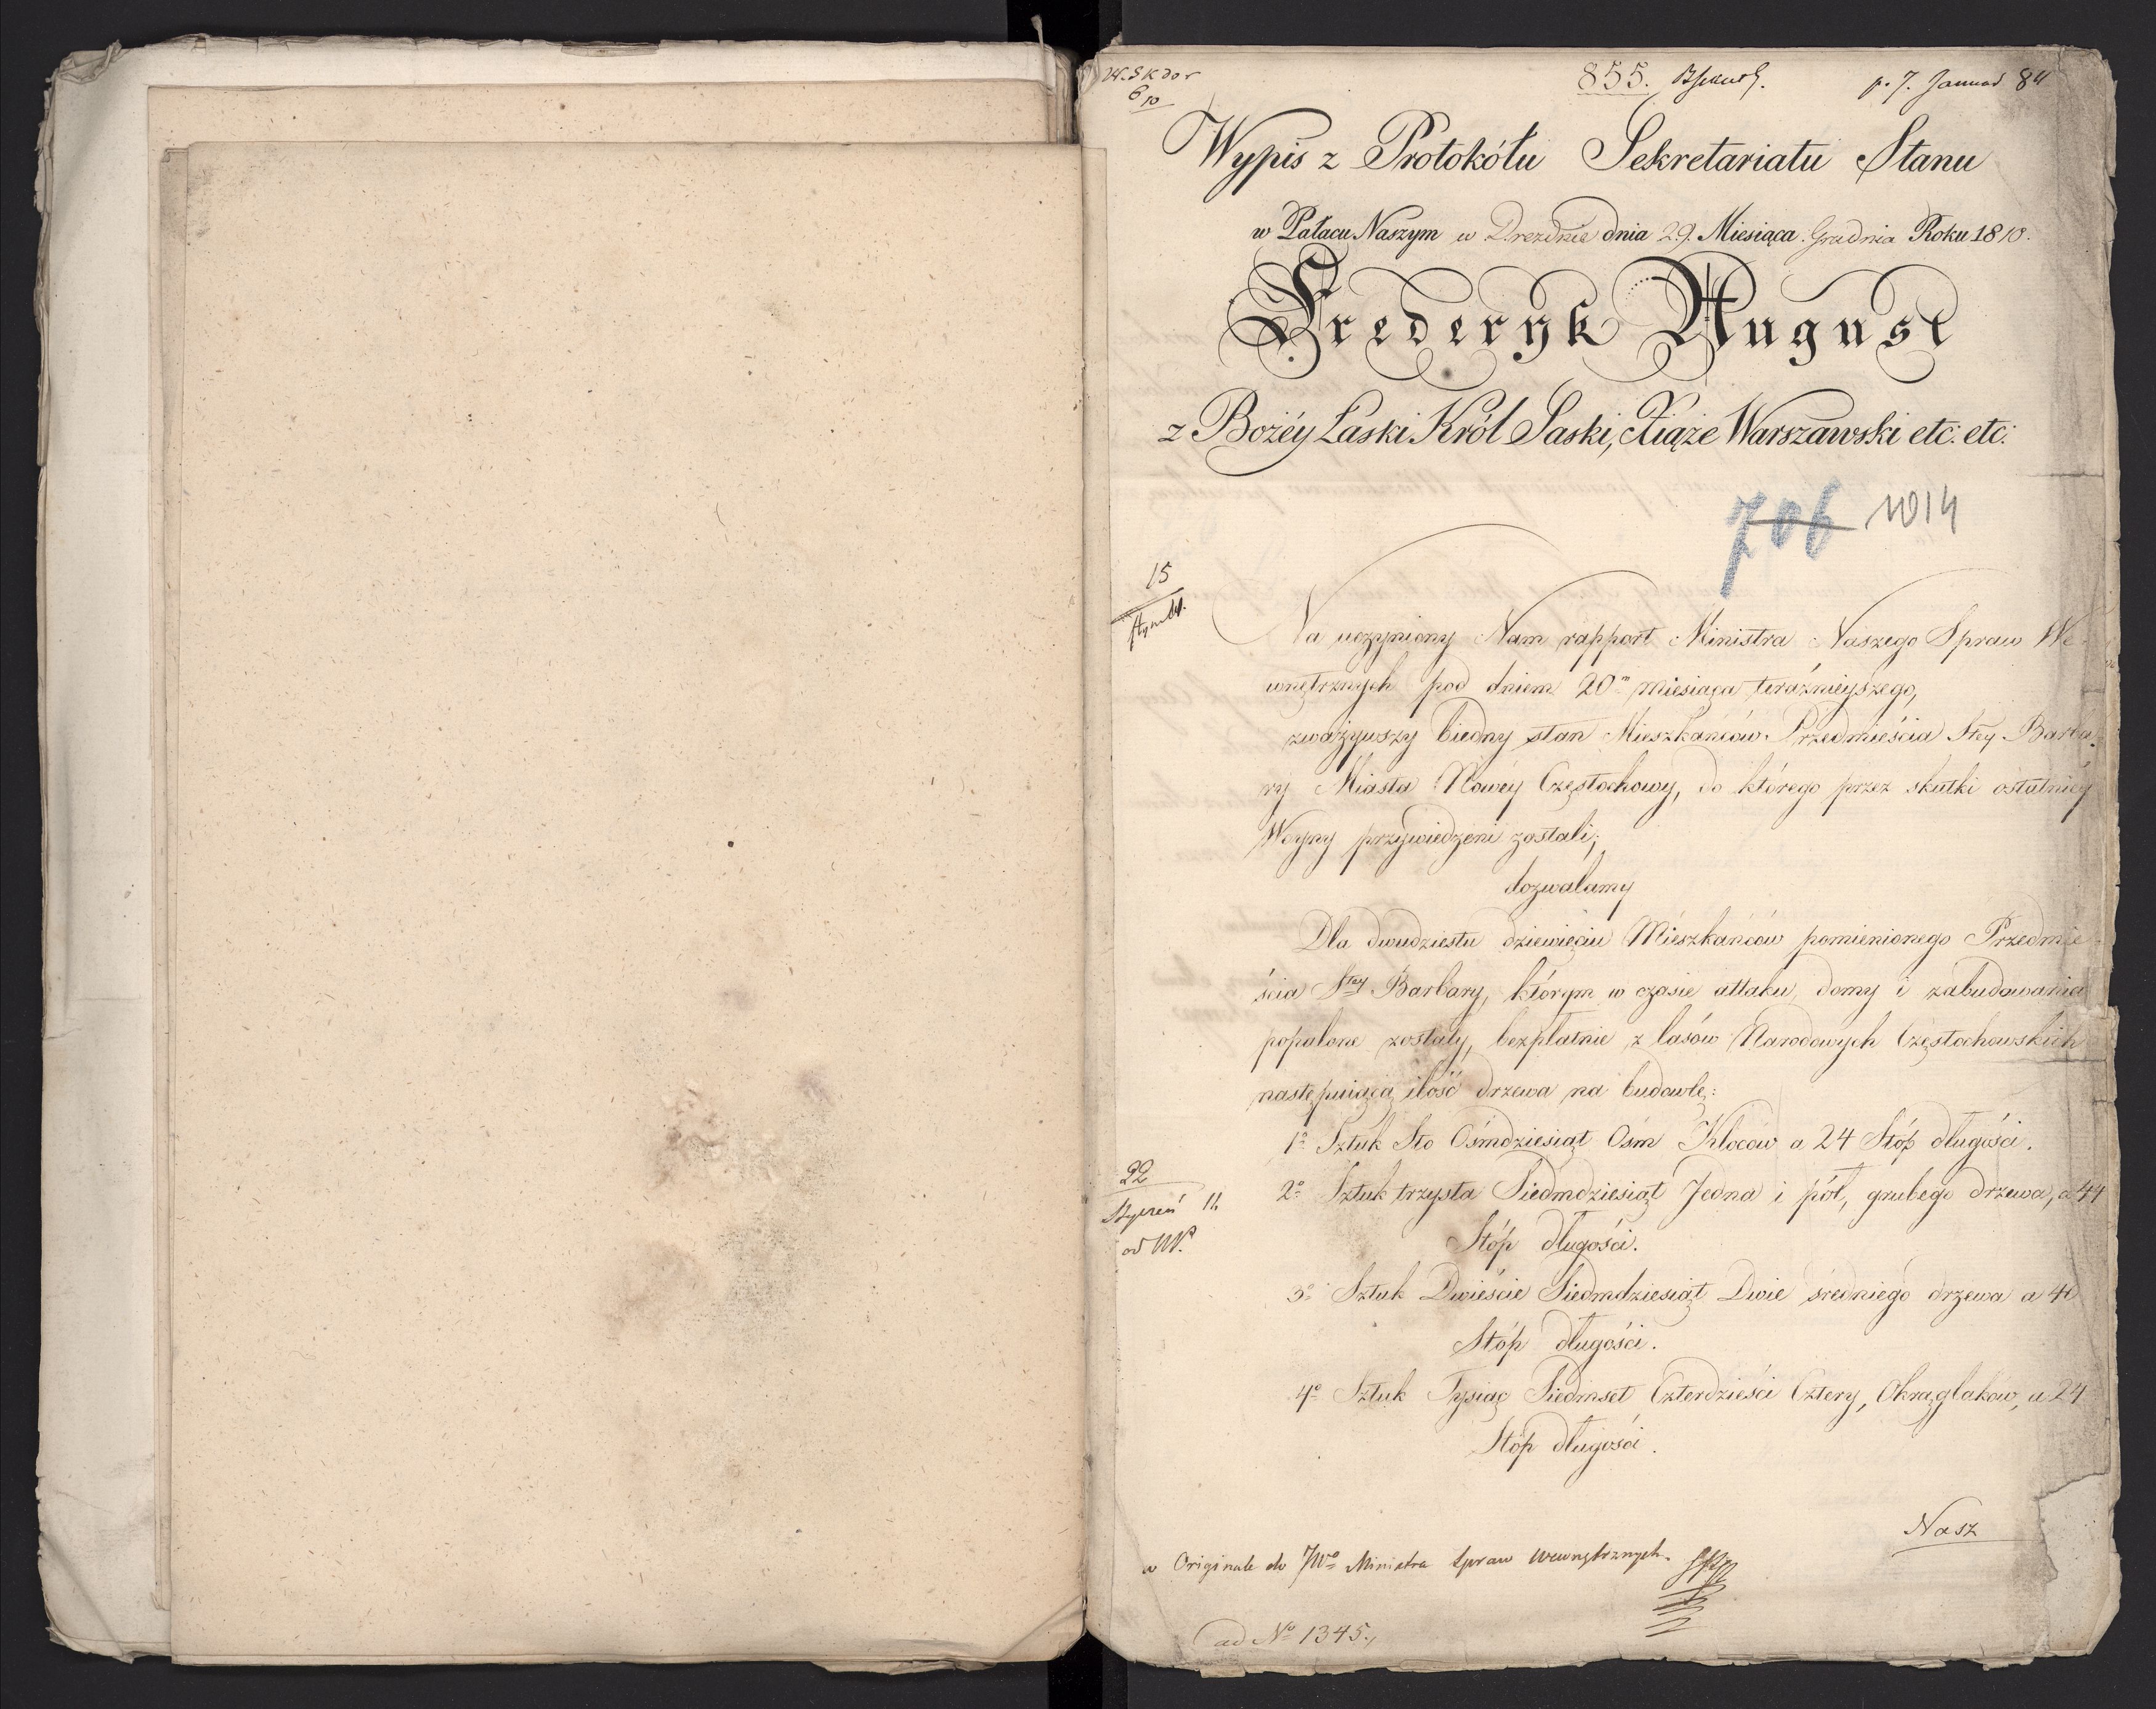 W. Skdor
6/10
855.
p. 7. Januar 84
Wypis z Protokółu Sekretariatu Stanu
w Pałacu Naszym w Dreźnie dnia 29. Miesiąca Grudnia Roku 1810.
Fryderyk August
z Bożéy Łaski Król Saski, Xiąże Warszawski etc: etc:
706 1014
15
Na uczyniony Nam rapport Ministra Naszego Spraw We-
wnętrznych pod dniem 20m miesiąca teraźnieyszego,
zważywszy biedny stan Mieszkańców Przedmieścia Stey Barba-
ry Miasta Nowéy Częstochowy, do którego przez skutki ostatniéy
Woyny przywiedzeni zostali;
dozwalamy
Dla dwudziestu dziewięciu Mieszkańców pomienionego Przedmie-
ścia Stey Barbary, którym w czasie attaku, domy i zabudowania
popalone zostały, bezpłatnie z lasów Narodowych Częstochowskich
następuiącą ilość drzewa na budowlę:
1o Sztuk Sto Ośmdziesiąt Ośm Kloców a 24 Stóp długości.
2o Sztuk trzysta Siedmdziesiąt Jedna i pół, grubego drzewa, a 44
Stóp długości.
22
Styczeń 11.
od W.
3o Sztuk Dwieście Siedmdziesiąt Dwie średniego drzewa a 40
Stóp długości.
4o Sztuk Tysiąc Siedmset Czterdzieści Cztery, Okrąglaków, a 24
Stóp długości.
Nasz
w Originale do JWo Ministra Spraw Wewnętrznych.
ad No 1345.